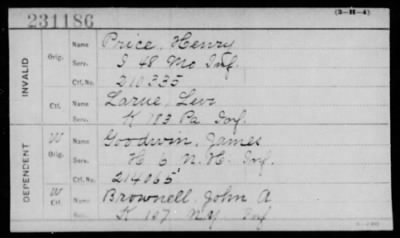 (3-H-4)
231186
INVALID
Orig.
Name Price, Henry
Serv. I 48 Mo Inf.
Ctf. No. 210335
Ctf.
Name Larue, Levi
Serv. K 183 Pa Inf.
DEPENDENT
W Orig.
Name Goodwin, James
Serv. H 6 N.H. Inf.
Ctf. No. 214065
W Ctf.
Name Brownell, John A
Serv. K 107 N.Y. Inf